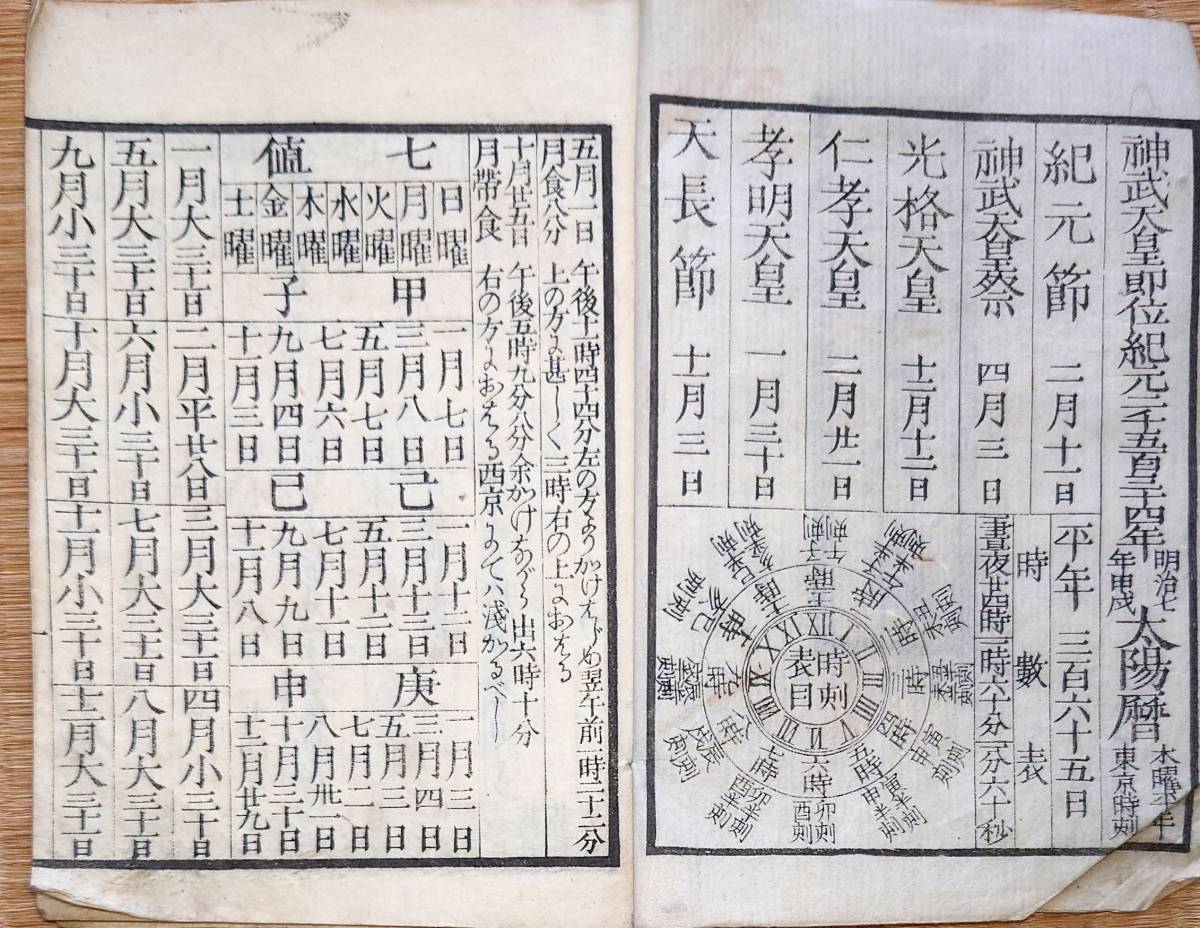 神武天皇即位紀元二千五百三十四年
明治七
年甲戌
太陽暦
木曜
東京時刻
紀元節 二月十一日
平年 三百六十五日
神武天皇祭 四月三日
時數表
晝夜廿四時
一時六十分
一分六十秒
光格天皇 十二月十二日
仁孝天皇 二月廿一日
孝明天皇 一月三十日
天長節 十一月三日
時刻
表目
I
II
III
IIII
V
VI
VII
VIII
IX
X
XI
XII
五時
六時
七時
八時
九時
卯刻
酉刻
五月一日
月食八分
午後十一時四十四分左の方よりかけはじめ翌午前一時三十二分
上の方に甚しく三時右の上におはる
十月廿五日
月帶食
午後五時九分八分余かけながら出六時十分
右の方におはる西京にては浅かるべし
七値
日曜
月曜
火曜
水曜
木曜
金曜
土曜
甲子
一月七日
三月八日
五月七日
七月六日
九月四日
十一月三日
己巳
一月十二日
三月十三日
五月十二日
七月十一日
九月九日
十一月八日
庚申
一月三日
三月四日
五月三日
七月二日
八月卅一日
十月三十日
十二月廿九日
一月大三十一日
二月平廿八日
三月大三十一日
四月小三十日
五月大三十一日
六月小三十日
七月大三十一日
八月大三十一日
九月小三十日
十月大三十一日
十一月小三十日
十二月大三十一日
一